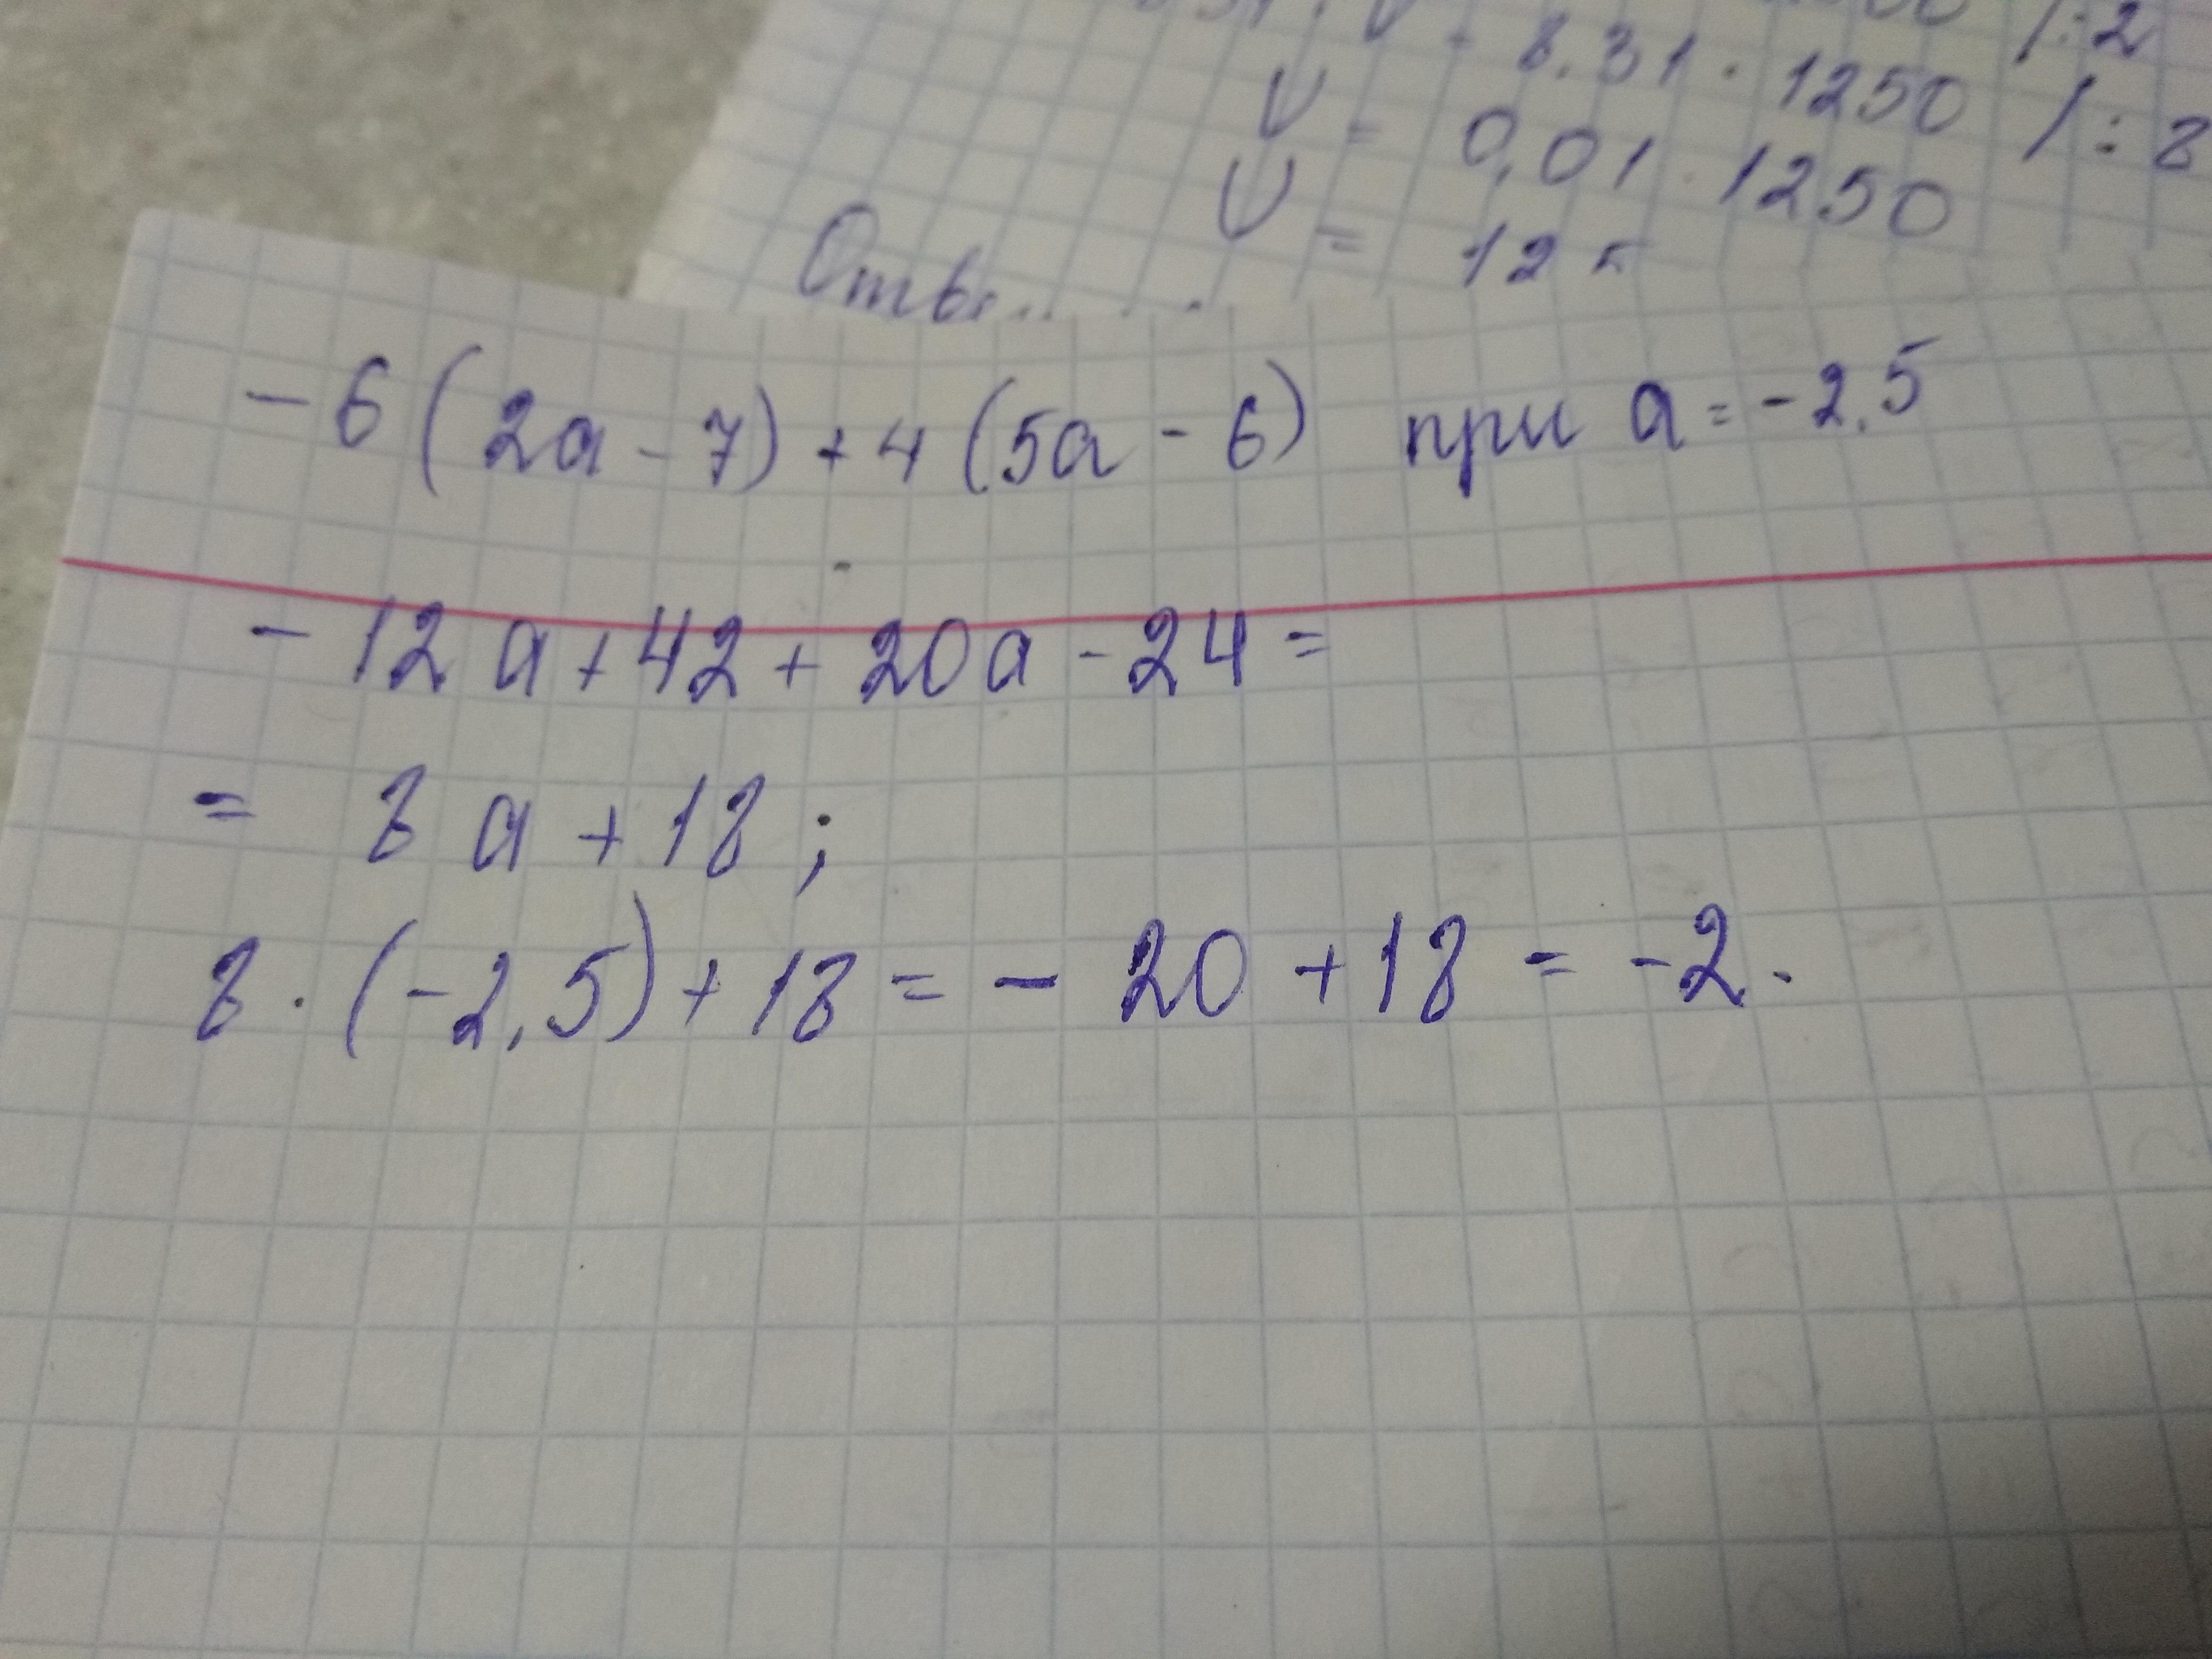 /:2
8.31 · 1250 /:8
V = 0,01 · 1250
V = 12
-6(2a-7)+4(5a-6) при a=-2,5
-12a+42+20a-24=
= 8a+18;
8·(-2,5)+18=-20+18=-2.